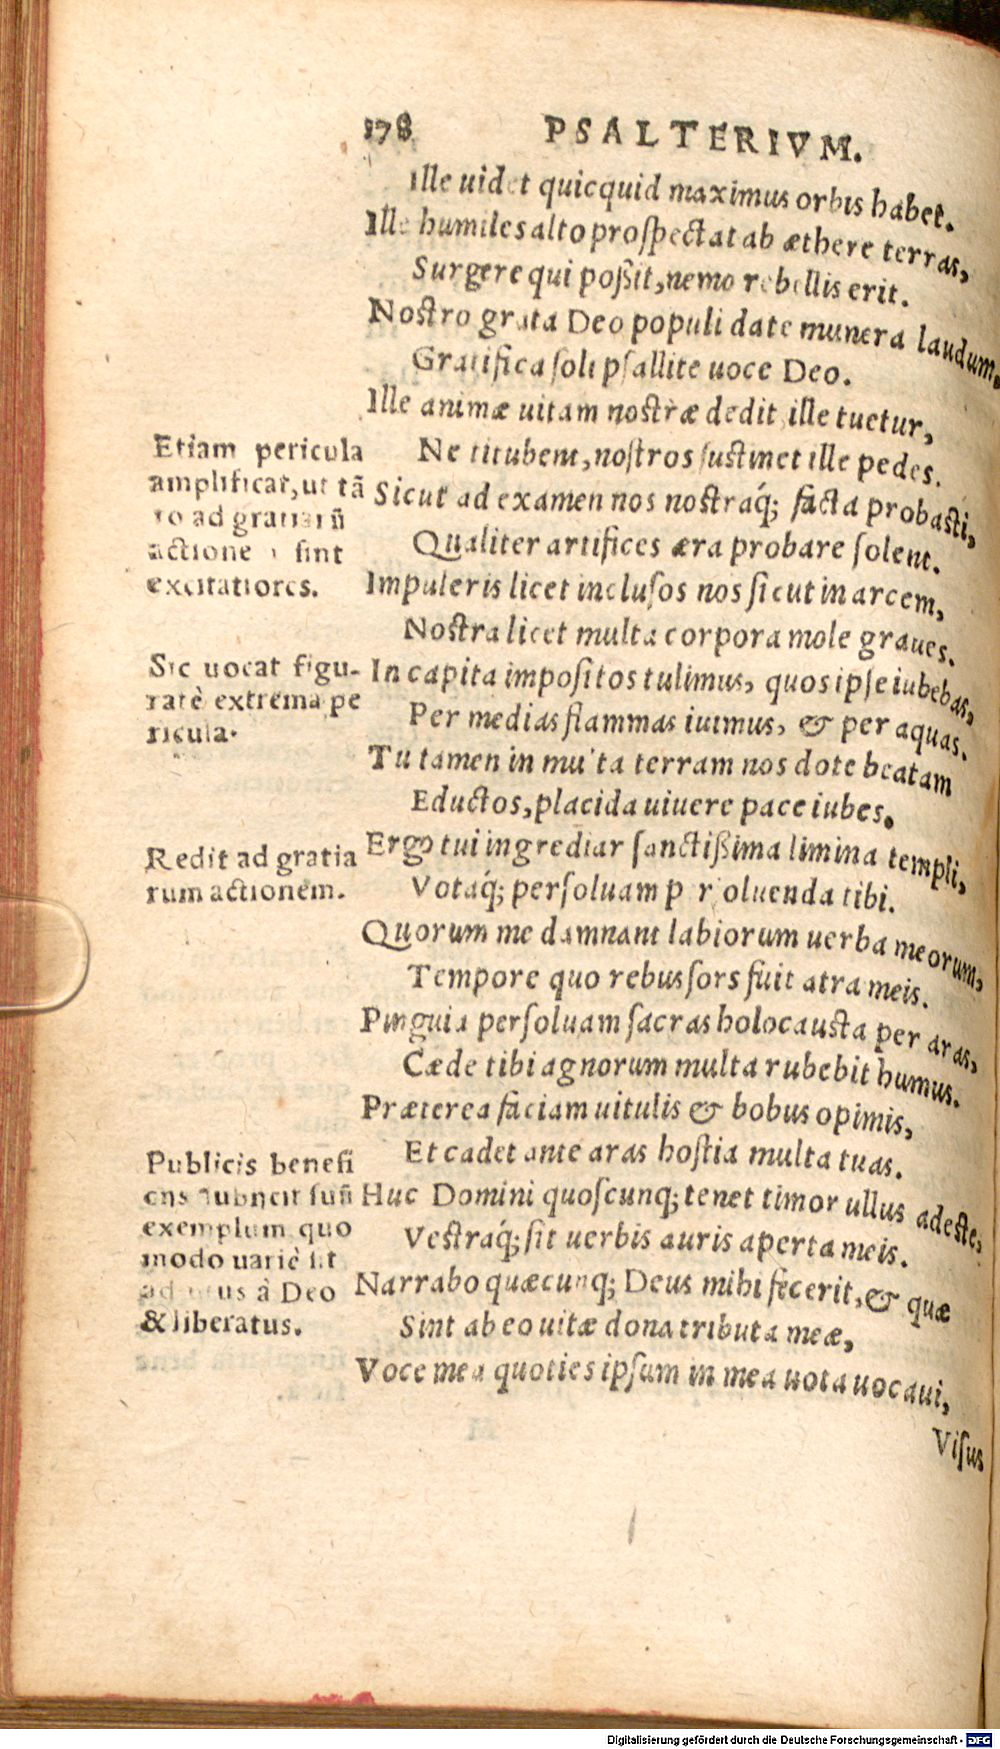 178 PSALTERIVM.
Ille uidet quicquid maximus orbis habet.
Ille humiles alto proſpectat ab æthere terras,
Surgere qui poßit, nemo rebellis erit.
Noſtro grata Deo populi date munera laudum,
Gratifica ſoli pſallite uoce Deo.
Ille animæ uitam noſtræ dedit, ille tuetur,
Ne titubent, noſtros ſuſtinet ille pedes.
Sicut ad examen nos noſtraq́; facta probaſti,
Qualiter artifices æra probare ſolent.
Impuleris licet incluſos nos ſicut in arcem,
Noſtra licet multa corpora mole graues.
In capita impoſitos tulimus, quos ipſe iubebas,
Per medias flammas iuimus, & per aquas.
Tu tamen in multa terram nos dote beatam
Eductos, placida uiuere pace iubes.
Ergo tui ingrediar ſanctißima limina templi,
Votaq́; perſoluam p r oluenda tibi.
Quorum me damnant labiorum uerba meorum,
Tempore quo rebus ſors fuit atra meis.
Pinguia perſoluam ſacras holocauſta per aras,
Cæde tibi agnorum multa rubebit humus.
Præterea faciam uitulis & bobus opimis,
Et cadet ante aras hoſtia multa tuas.
Huc Domini quoſcunq; tenet timor ullus adeſte,
Veſtraq́; ſit uerbis auris aperta meis.
Narrabo quæcunq; Deus mihi fecerit, & quæ
Sint ab eo uitæ dona tributa meæ,
Voce mea quoties ipſum in mea uota uocaui,
Viſus
Etiam pericula
amplificat, ut tā
to ad gratiarū
actione ſint
excitatiores.
Sic uocat figu-
ratè extrema pe
ricula.
Redit ad gratia
rum actionem.
Publicis benefi
ciis ſubijcit ſuū
exemplum quo
modo uariè ſit
adiutus à Deo
& liberatus.
Digitalisierung gefördert durch die Deutsche Forschungsgemeinschaft - DFG